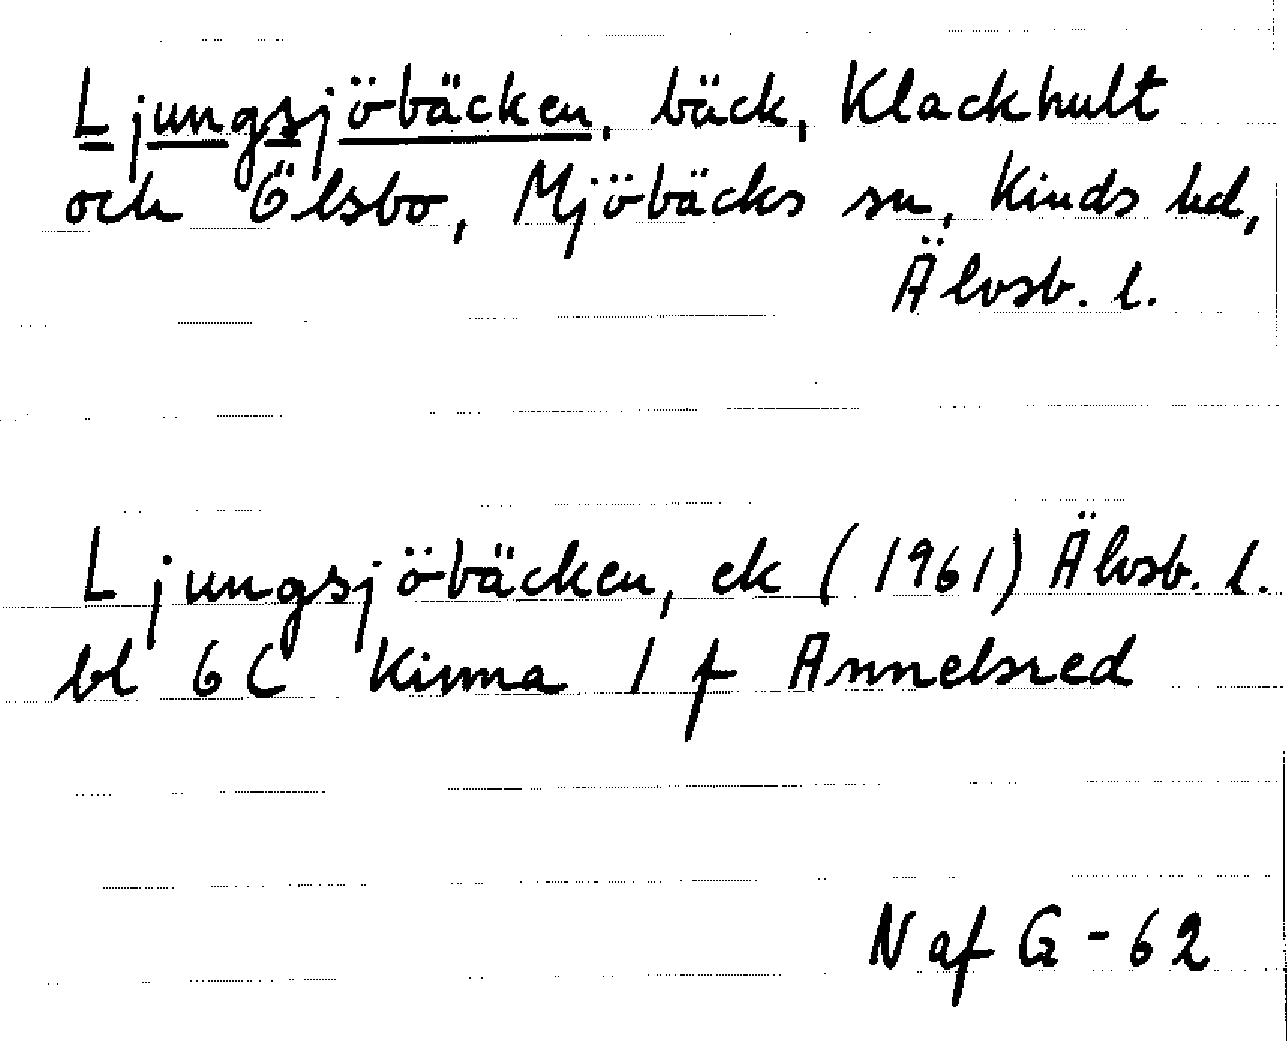 Ljungsjöbäcken, bäck, Klackhult
och Ölsbo, Mjöbäcks sn, Kinds hd,
Älvsb. l.
Ljungsjöbäcken, ek (1961) Älvsb. l.
bl 6C Kinna 1 f Annelsred
N af G - 62